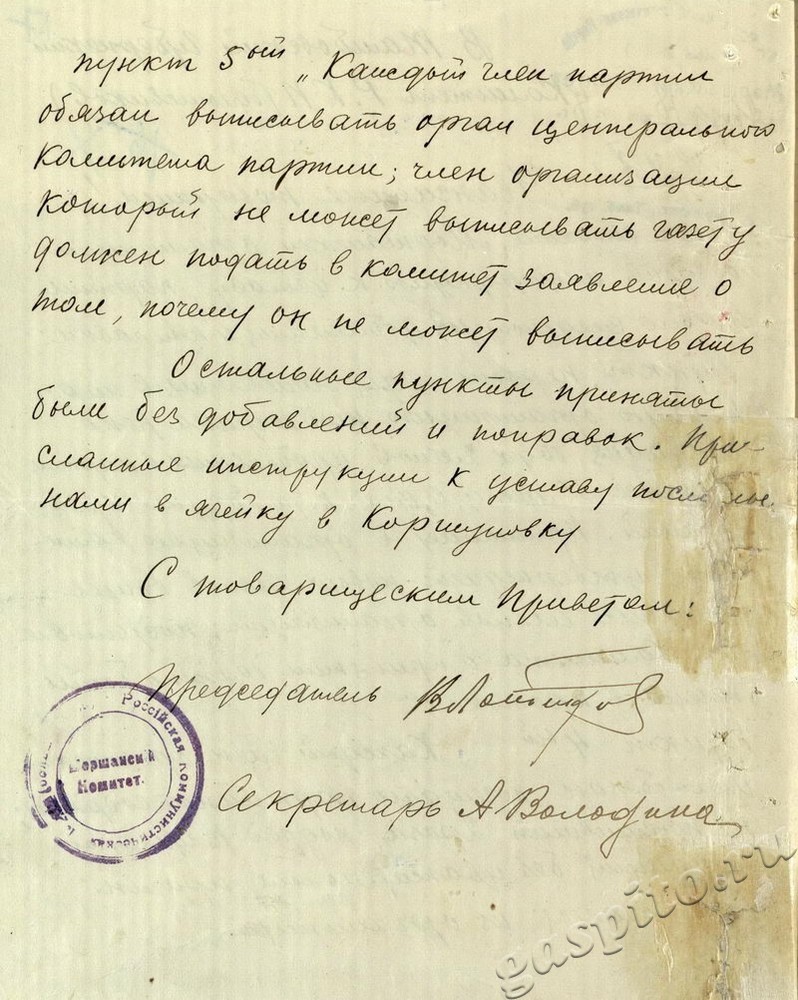 пункт 5ый „Каждый член партии
обязан выписывать орган центрального
комитета партии; член организации
который не может выписывать газету
должен подать в комитет заявление о
том, почему он не может выписывать
Остальные пункты приняты
были без добавлений и поправок. При-
сланные инструкции к уставу посланы
нами в ячейку в Коршуновку
С товарищеским приветом:
Председатель В
Секретарь А Володина
Россійская коммунистическая
Моршанскій
Комитет.
gaspito.ru